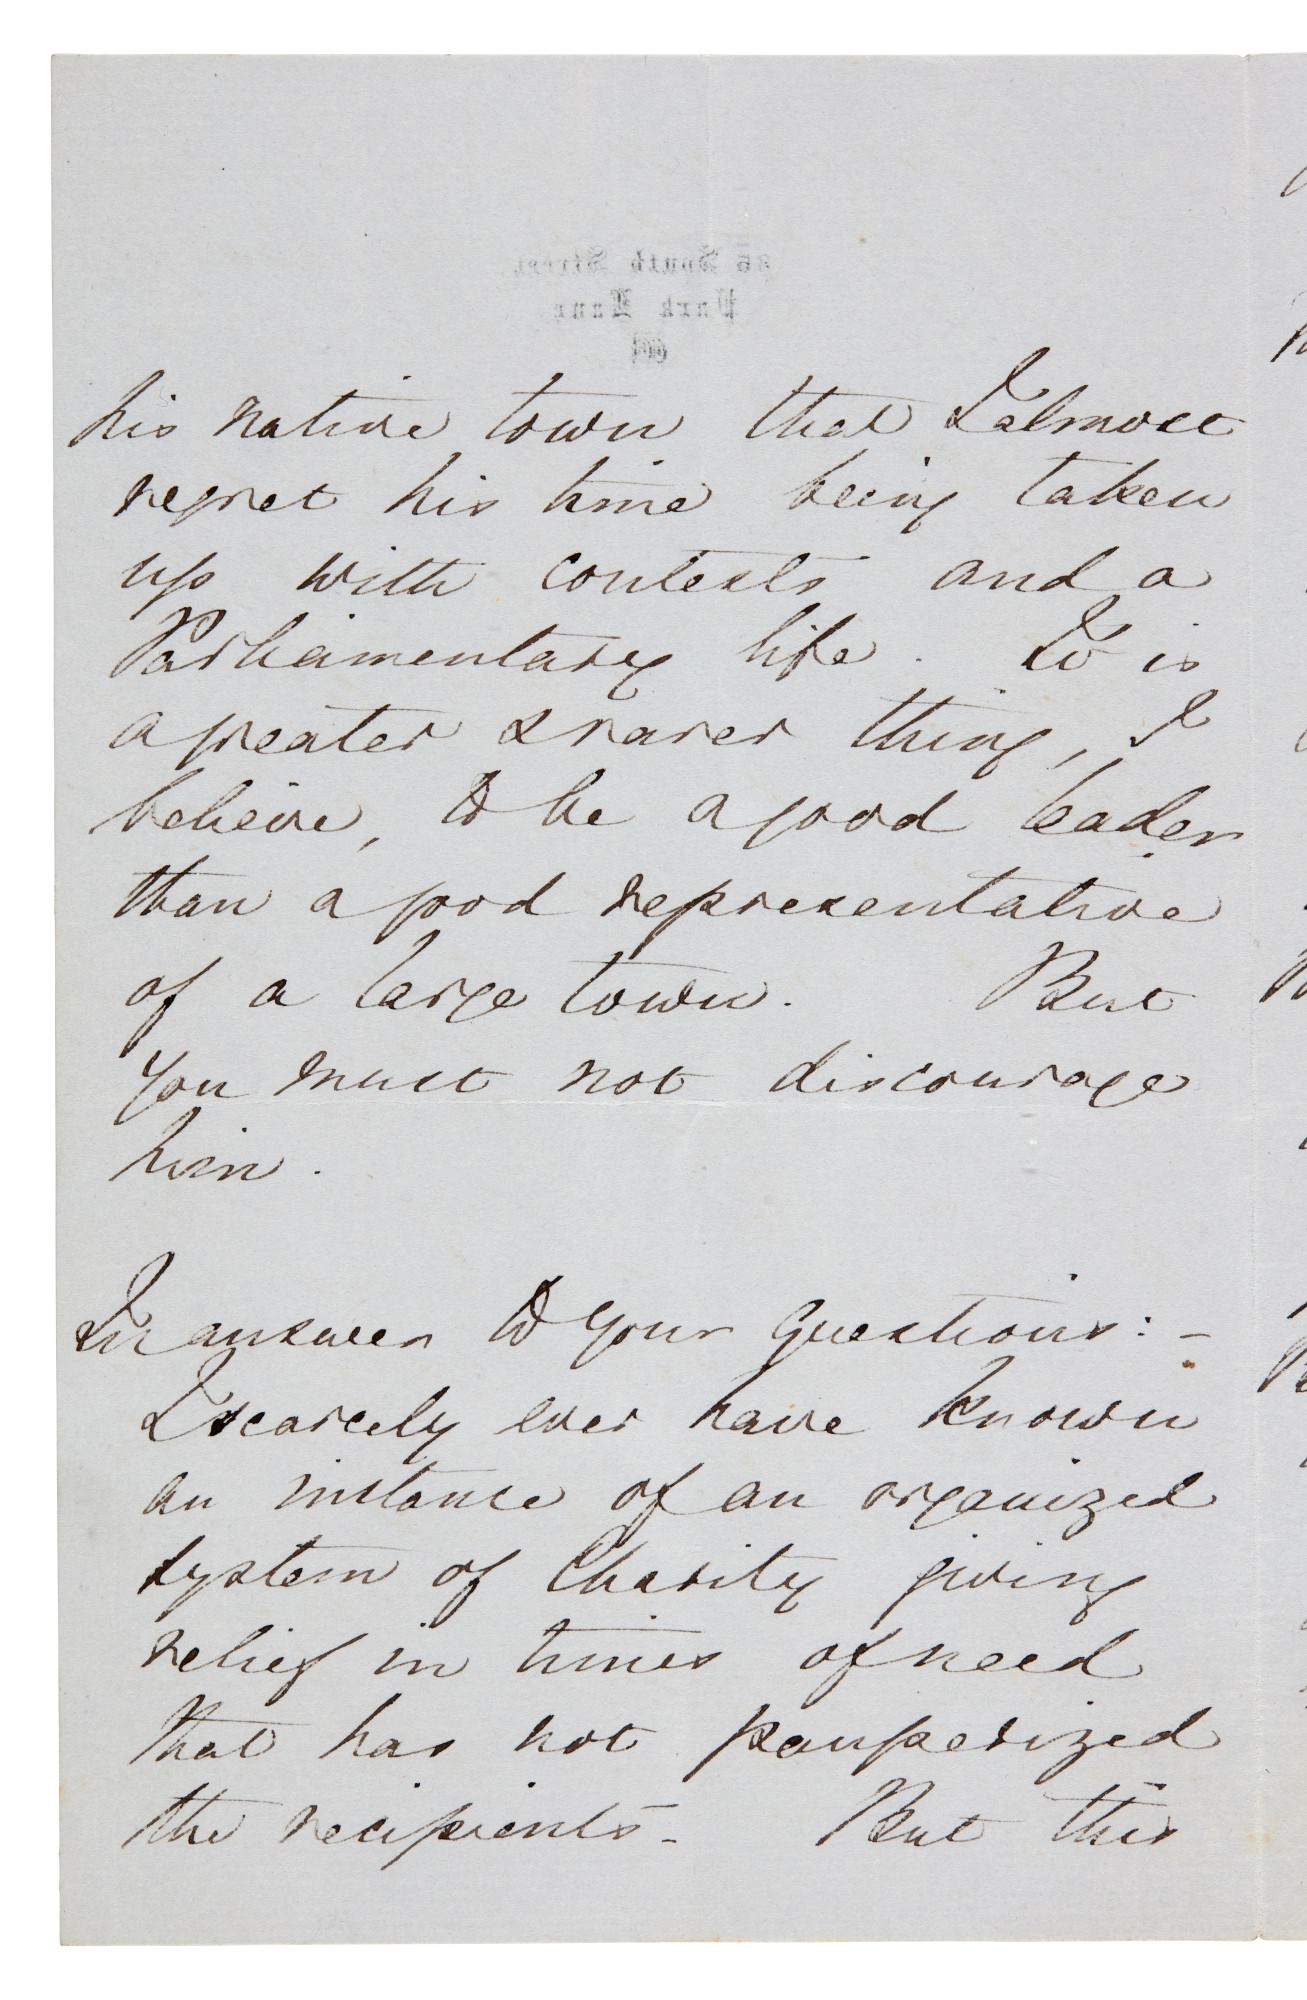 35 South Street
Park Lane
W
his native town that I almost
regret his time being taken
up with contests and a
Parliamentary life. It is
a greater & rarer thing, I
believe, to be a good leader
than a good representative
of a large town. But
you must not discourage
him.
In answer to your questions:-
I scarcely ever have known
an instance of an organized
system of Charity giving
relief in times of need
that has not pauperized
the recipients - But this